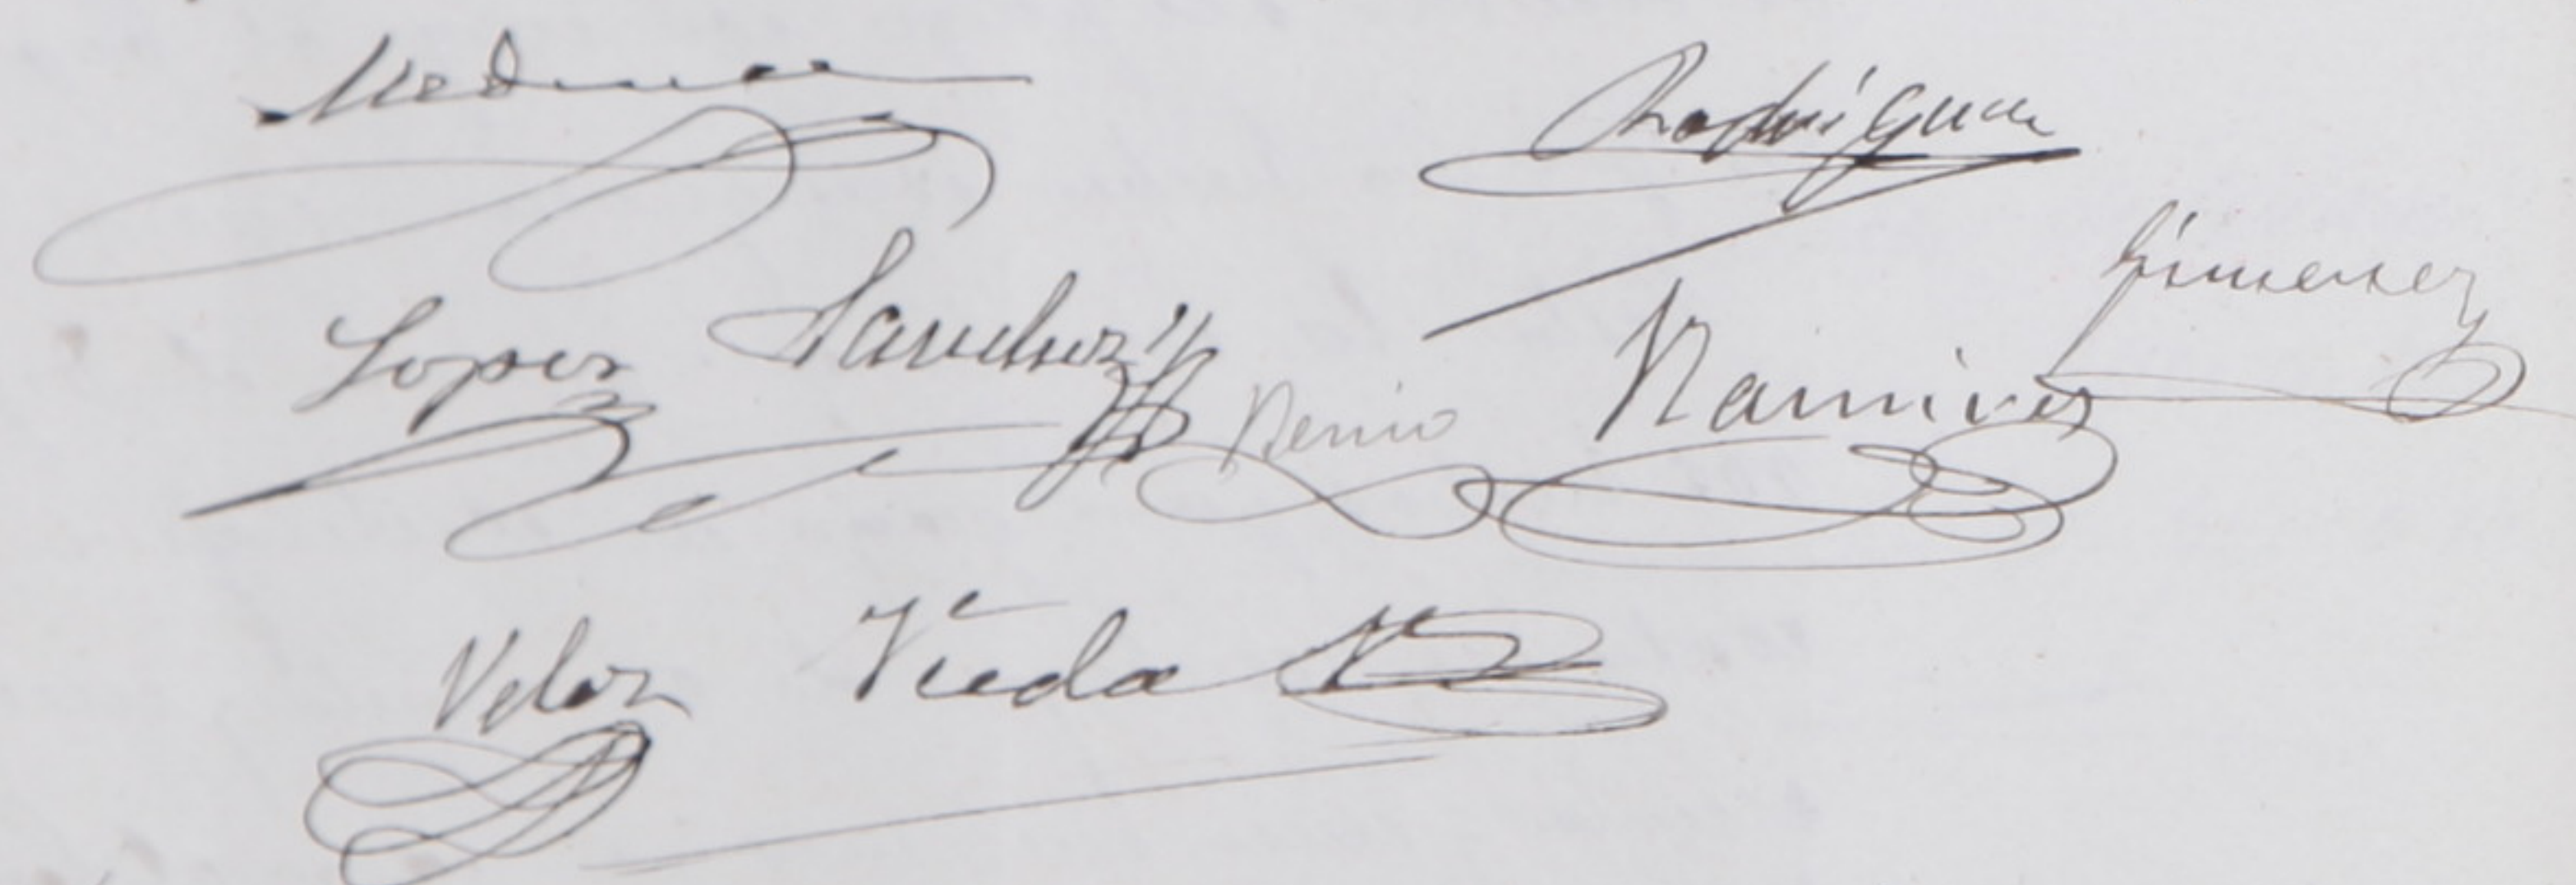 Medina Rodriguez
Lopez Sanchez Ramirez Gimenez
Veloz Vieda